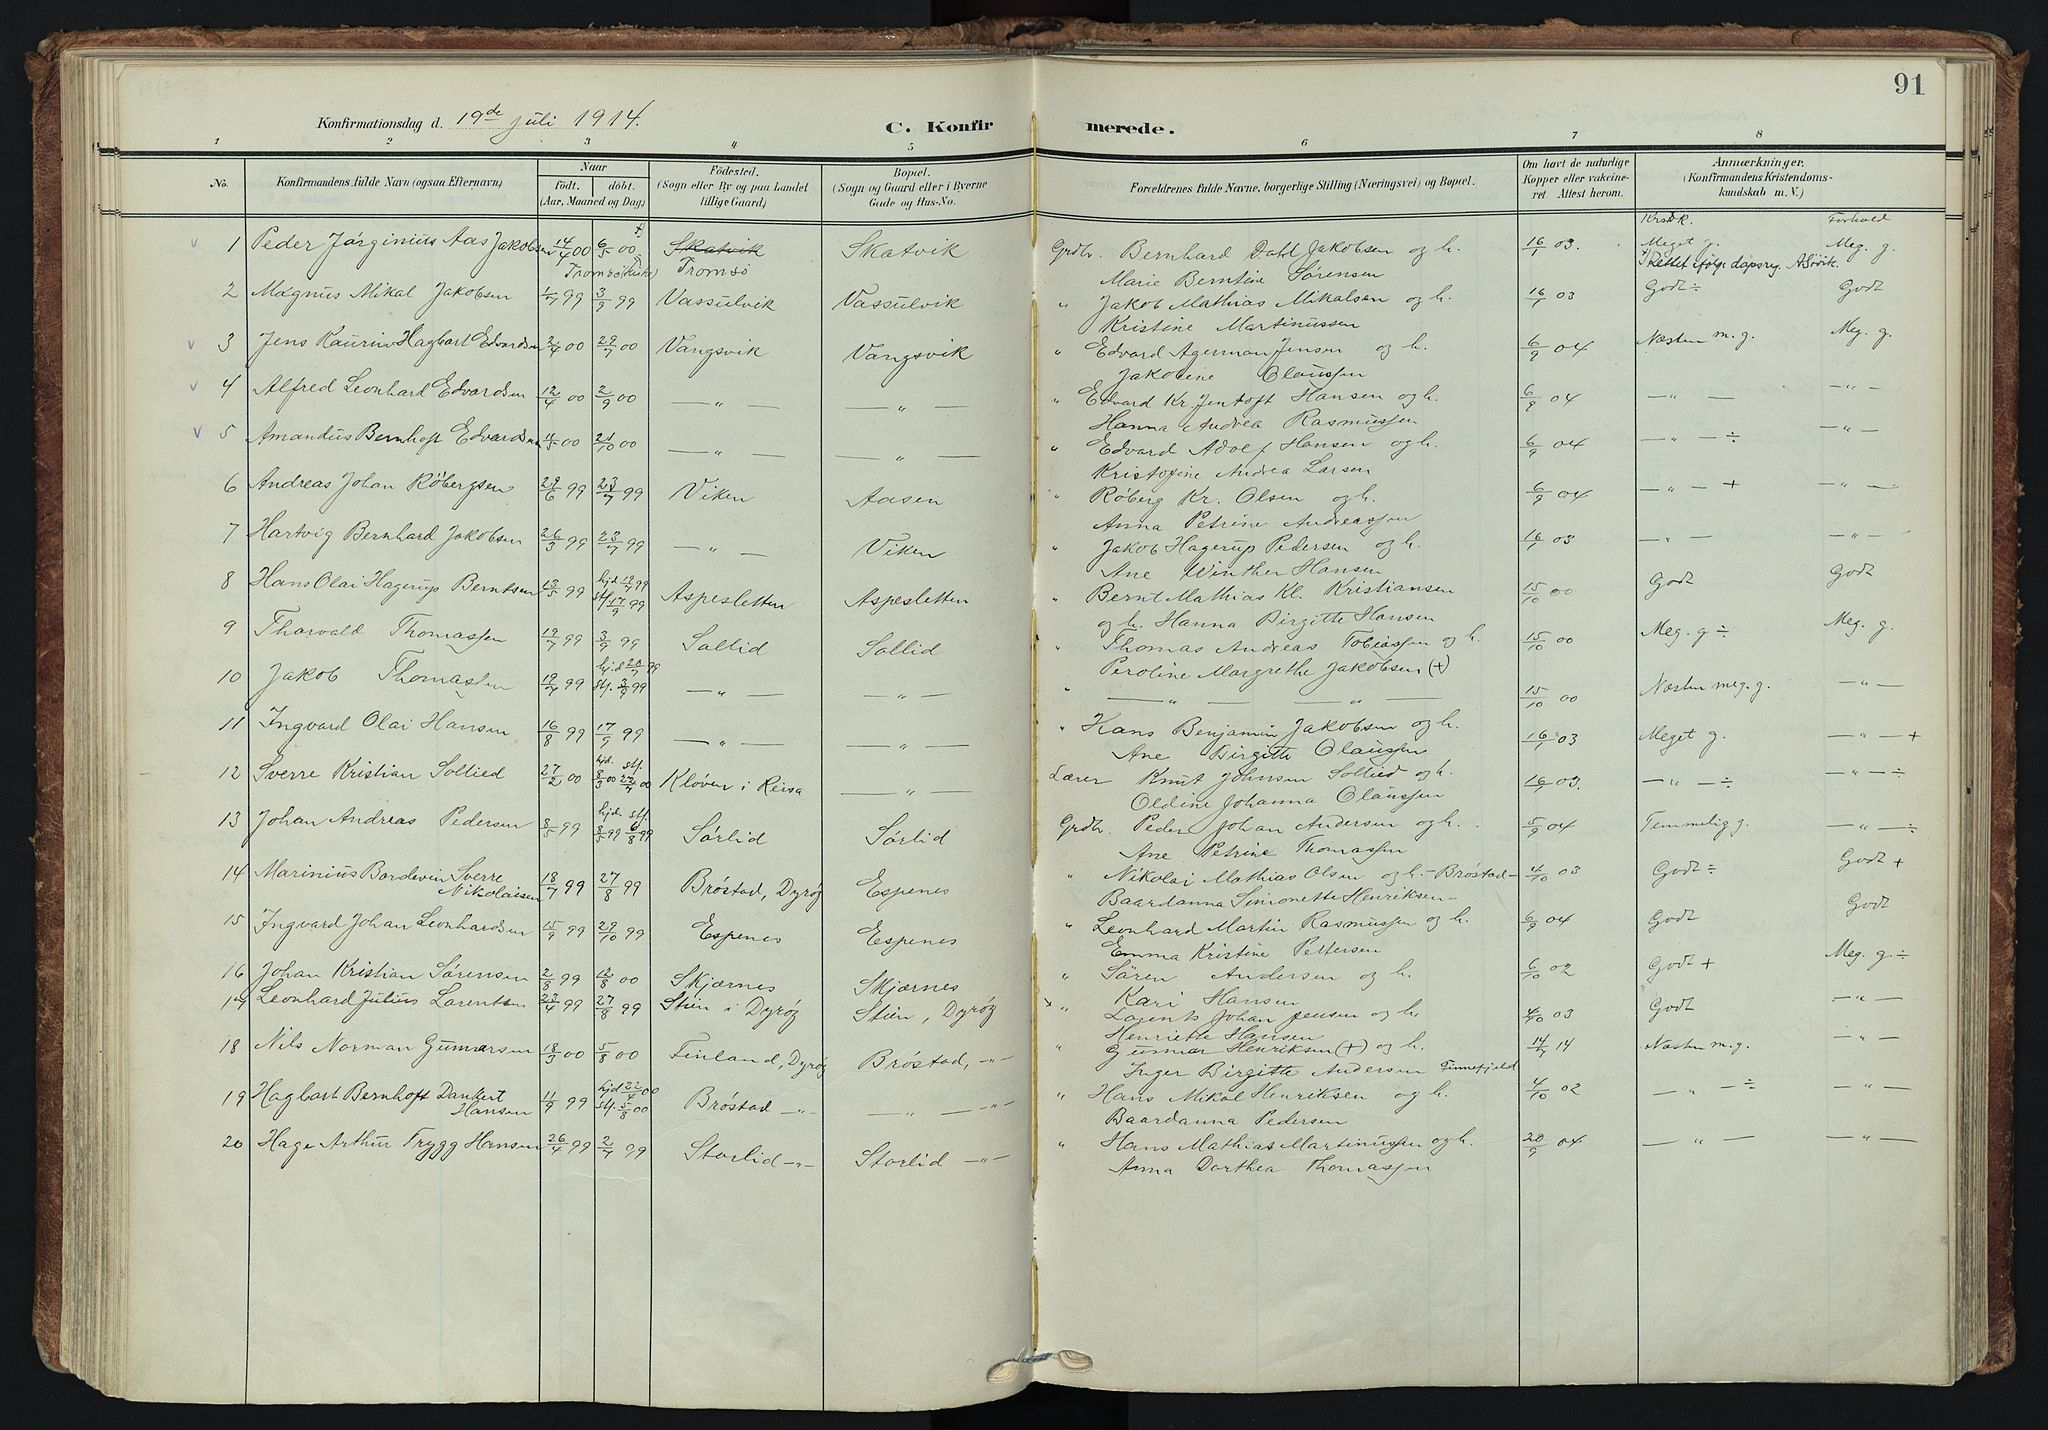 91
Konfirmationsdag d. 19de juli 1914.
C. Konfirmerede.
1 2 3 4 5 6 7 8
No. Konfirmandens fulde Navn (ogsaa Efternavn) Naar født. døbt. (Aar, Maaned og Dag) Fødested. (Sogn eller By og paa Landet tillige Gaard) Bopæl. (Sogn og Gaard eller i Byerne Gade og Hus-No. Forældrenes fulde Navne, borgerlige Stilling (Næringsvei) og Bopæl. Om havt de naturlige Kopper eller vakcineret. Attest herom. Anmærkninger. (Konfirmandens Kristendomskundskab m. V.)
Forhold
1 Peder Jørginius Aas Jakobsen 14/4 00 6/5 00 Skatvik Skatvik Grdbr. Bernhard Dahl Jakobsen og h. 16/1 03. Meget g. Meg. g.
Tromsø Marie Berntine Sørensen Rettet ifølge dåpsreg.
2 Magnus Mikal Jakobsen 1/7 99 3/9 99 Vassulvik Vassulvik " Jakob Mathias Mikalsen og h. 16/1 03 Godt ÷ Godt
Kristine Martinussen
3 Jens Kaurin Hagbart Edvardsen 2/4 00 29/7 00 Vangsvik Vangsvik " Edvard Agerman Jensen og h. 6/9 04 Næsten m. g. Meg. g.
Jakobine Claussen
4 Alfred Leonhard Edvardsen 12/4 00 2/9 00 — " — — " — " Edvard Kr. Jentoft Hansen og h. 6/9 04 — " — — " —
Hanna Andrea Rasmussen
5 Amandus Bernhoft Edvardsen 11/5 00 21/10 00 — " — — " — " Edvard Adolf Hansen og h. 6/9 04 — " — ÷ — " —
Kristofine Andrea Larsen
6 Andreas Johan Røbergsen 29/6 99 23/7 99 Viken Aasen " Røberg Kr. Olsen og h. 6/9 04 — " — + — " —
Anna Petrine Andreassen
7 Hartvig Bernhard Jakobsen 26/3 99 23/7 99 — " — Viken " Jakob Hagerup Pedersen og h. 16/1 03 — " — — " —
Ane Winther Hansen
8 Hans Olai Hagerup Berntsen 13/5 99 hjd 12/7 99 stf. 17/9 99 Aspesletten Aspesletten " Bernt Mathias Kl. Kristiansen 15/10 00 Godt Godt
og h. Hanna Birgitte Hansen
9 Thorvald Thomassen 19/7 99 3/9 99 Sollid Sollid " Thomas Andreas Tobiassen og h. 15/10 00 Meg. g ÷ Meg. g.
Peroline Margrethe Jakobsen (+)
10 Jakob Thomassen 19/7 99 hjd 20/7 99 stf. 3/9 99 — " — — " — " — " — — " — 15/10 00 Næsten meg. g. — " —
11 Ingvard Olai Hansen 16/8 99 17/9 99 — " — — " — " Hans Benjamin Jakobsen og h. 16/1 03 Meget g. — " — +
Ane Birgitte Olaussen
12 Sverre Kristian Sollied 27/2 00 hjd. 8/3 00 stf. 22/7 00 Kløven i Reisa — " — Lærer Knut Johnsen Sollied og h. 16/9 03. — " — ÷ — " — ÷
Oldine Johanna Olaussen
13 Johan Andreas Pedersen 8/5 99 hjd. 8/5 99 stf. 6/8 99 Sørlid Sørlid Grdbr. Peder Johan Andersen og h. 5/9 04 Temmelig g. — " — ÷
Ane Petrine Thomassen
14 Marinius Bordevin Sverre Nikolaisen 18/7 99 27/8 99 Brøstad, Dyrøy Espenes " Nikolai Mathias Olsen og h. – Brøstad – 4/10 03 Godt ÷ Godt +
Baardanna Simonette Henriksen –
15 Ingvard Johan Leonhardsen 15/9 99 29/10 99 Espenes Espenes " Leonhard Martin Rasmussen og h. 6/9 04 Godt Godt
Emma Kristine Pettersen
16 Johan Kristian Sørensen 2/8 99 12/8 00 Skjærnes Skjærnes " Søren Andersen og h. 6/10 02 Godt + Meg. g. ÷
Kari Hansen
17 Leonhard Julius Larentsen 23/4 99 27/8 99 Stien i Dyrøy Stien, Dyrøy " Lorents Johan Jensen og h. 4/10 03 Godt — " —
Henriette Hansen
18 Nils Norman Gunnarsen 18/3 00 5/8 00 Finland, Dyrøy Brøstad, –"– " Gunnar Henriksen (+) og h. 14/7 14 Næsten m. g. — " —
Inger Birgitte Andersen Finnefjeld
19 Hagbart Bernhoft Dankert Hansen 11/9 99 stf. 5/8 00 Brøstad –"– — " — –"– " Hans Mikal Henriksen og h. 4/10 02 — " — ÷ — " —
Baardanna Pedersen
20 Hage Arthur Trygg Hansen 26/4 99 2/7 99 Storlid –"– Storlid –"– " Hans Mathias Martinussen og h. 20/9 04 — " — — " —
Anna Dorthea Thomassen